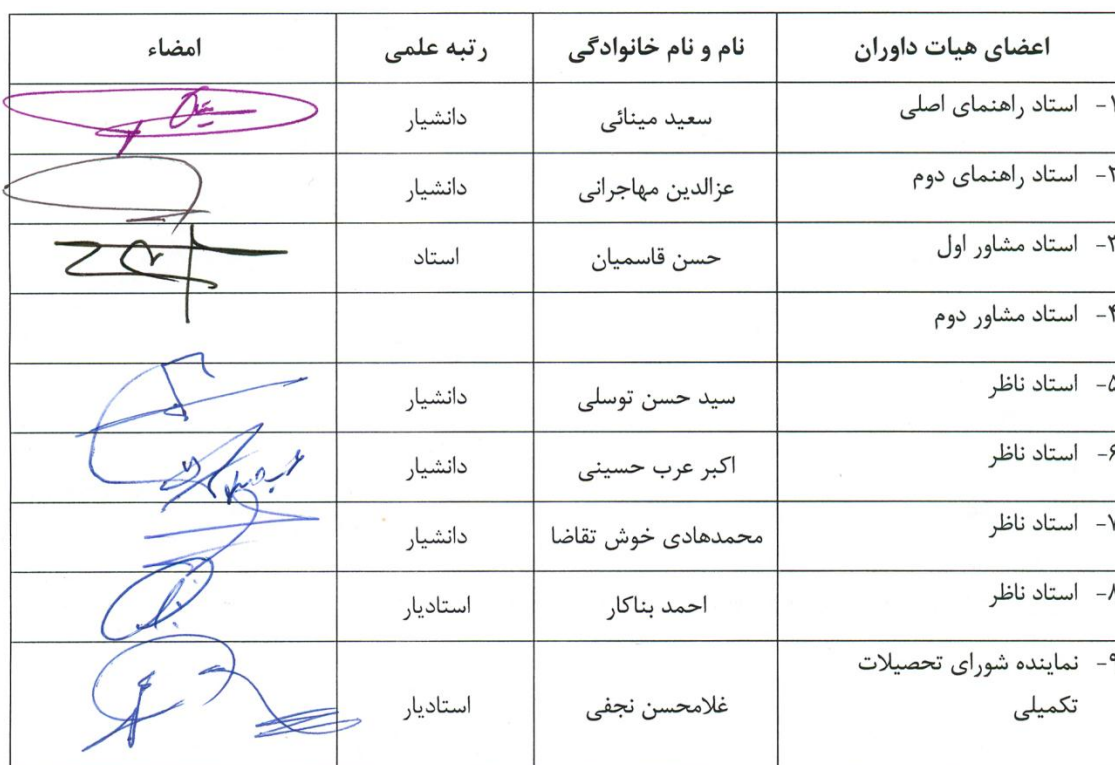 اعضای هیات داوران نام و نام خانوادگی رتبه علمی امضاء
۱- استاد راهنمای اصلی سعید مینائی دانشیار
۲- استاد راهنمای دوم عزالدین مهاجرانی دانشیار
۳- استاد مشاور اول حسن قاسمیان استاد
۴- استاد مشاور دوم
۵- استاد ناظر سید حسن توسلی دانشیار
۶- استاد ناظر اکبر عرب حسینی دانشیار
۷- استاد ناظر محمدهادی خوش تقاضا دانشیار
۸- استاد ناظر احمد بناکار استادیار
۹- نماینده شورای تحصیلات
تکمیلی غلامحسن نجفی استادیار